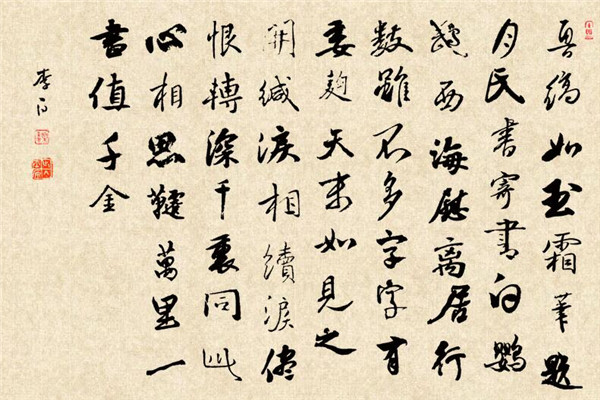 魯縞如玉霜筆題
月氏書寄書白鸚
鵡西海慰离居行
數雖不多字字有
委麯天末如見之
開緘淚相續淚儘
恨轉深千裏同此
心相思韆萬里一
書值千金
李白